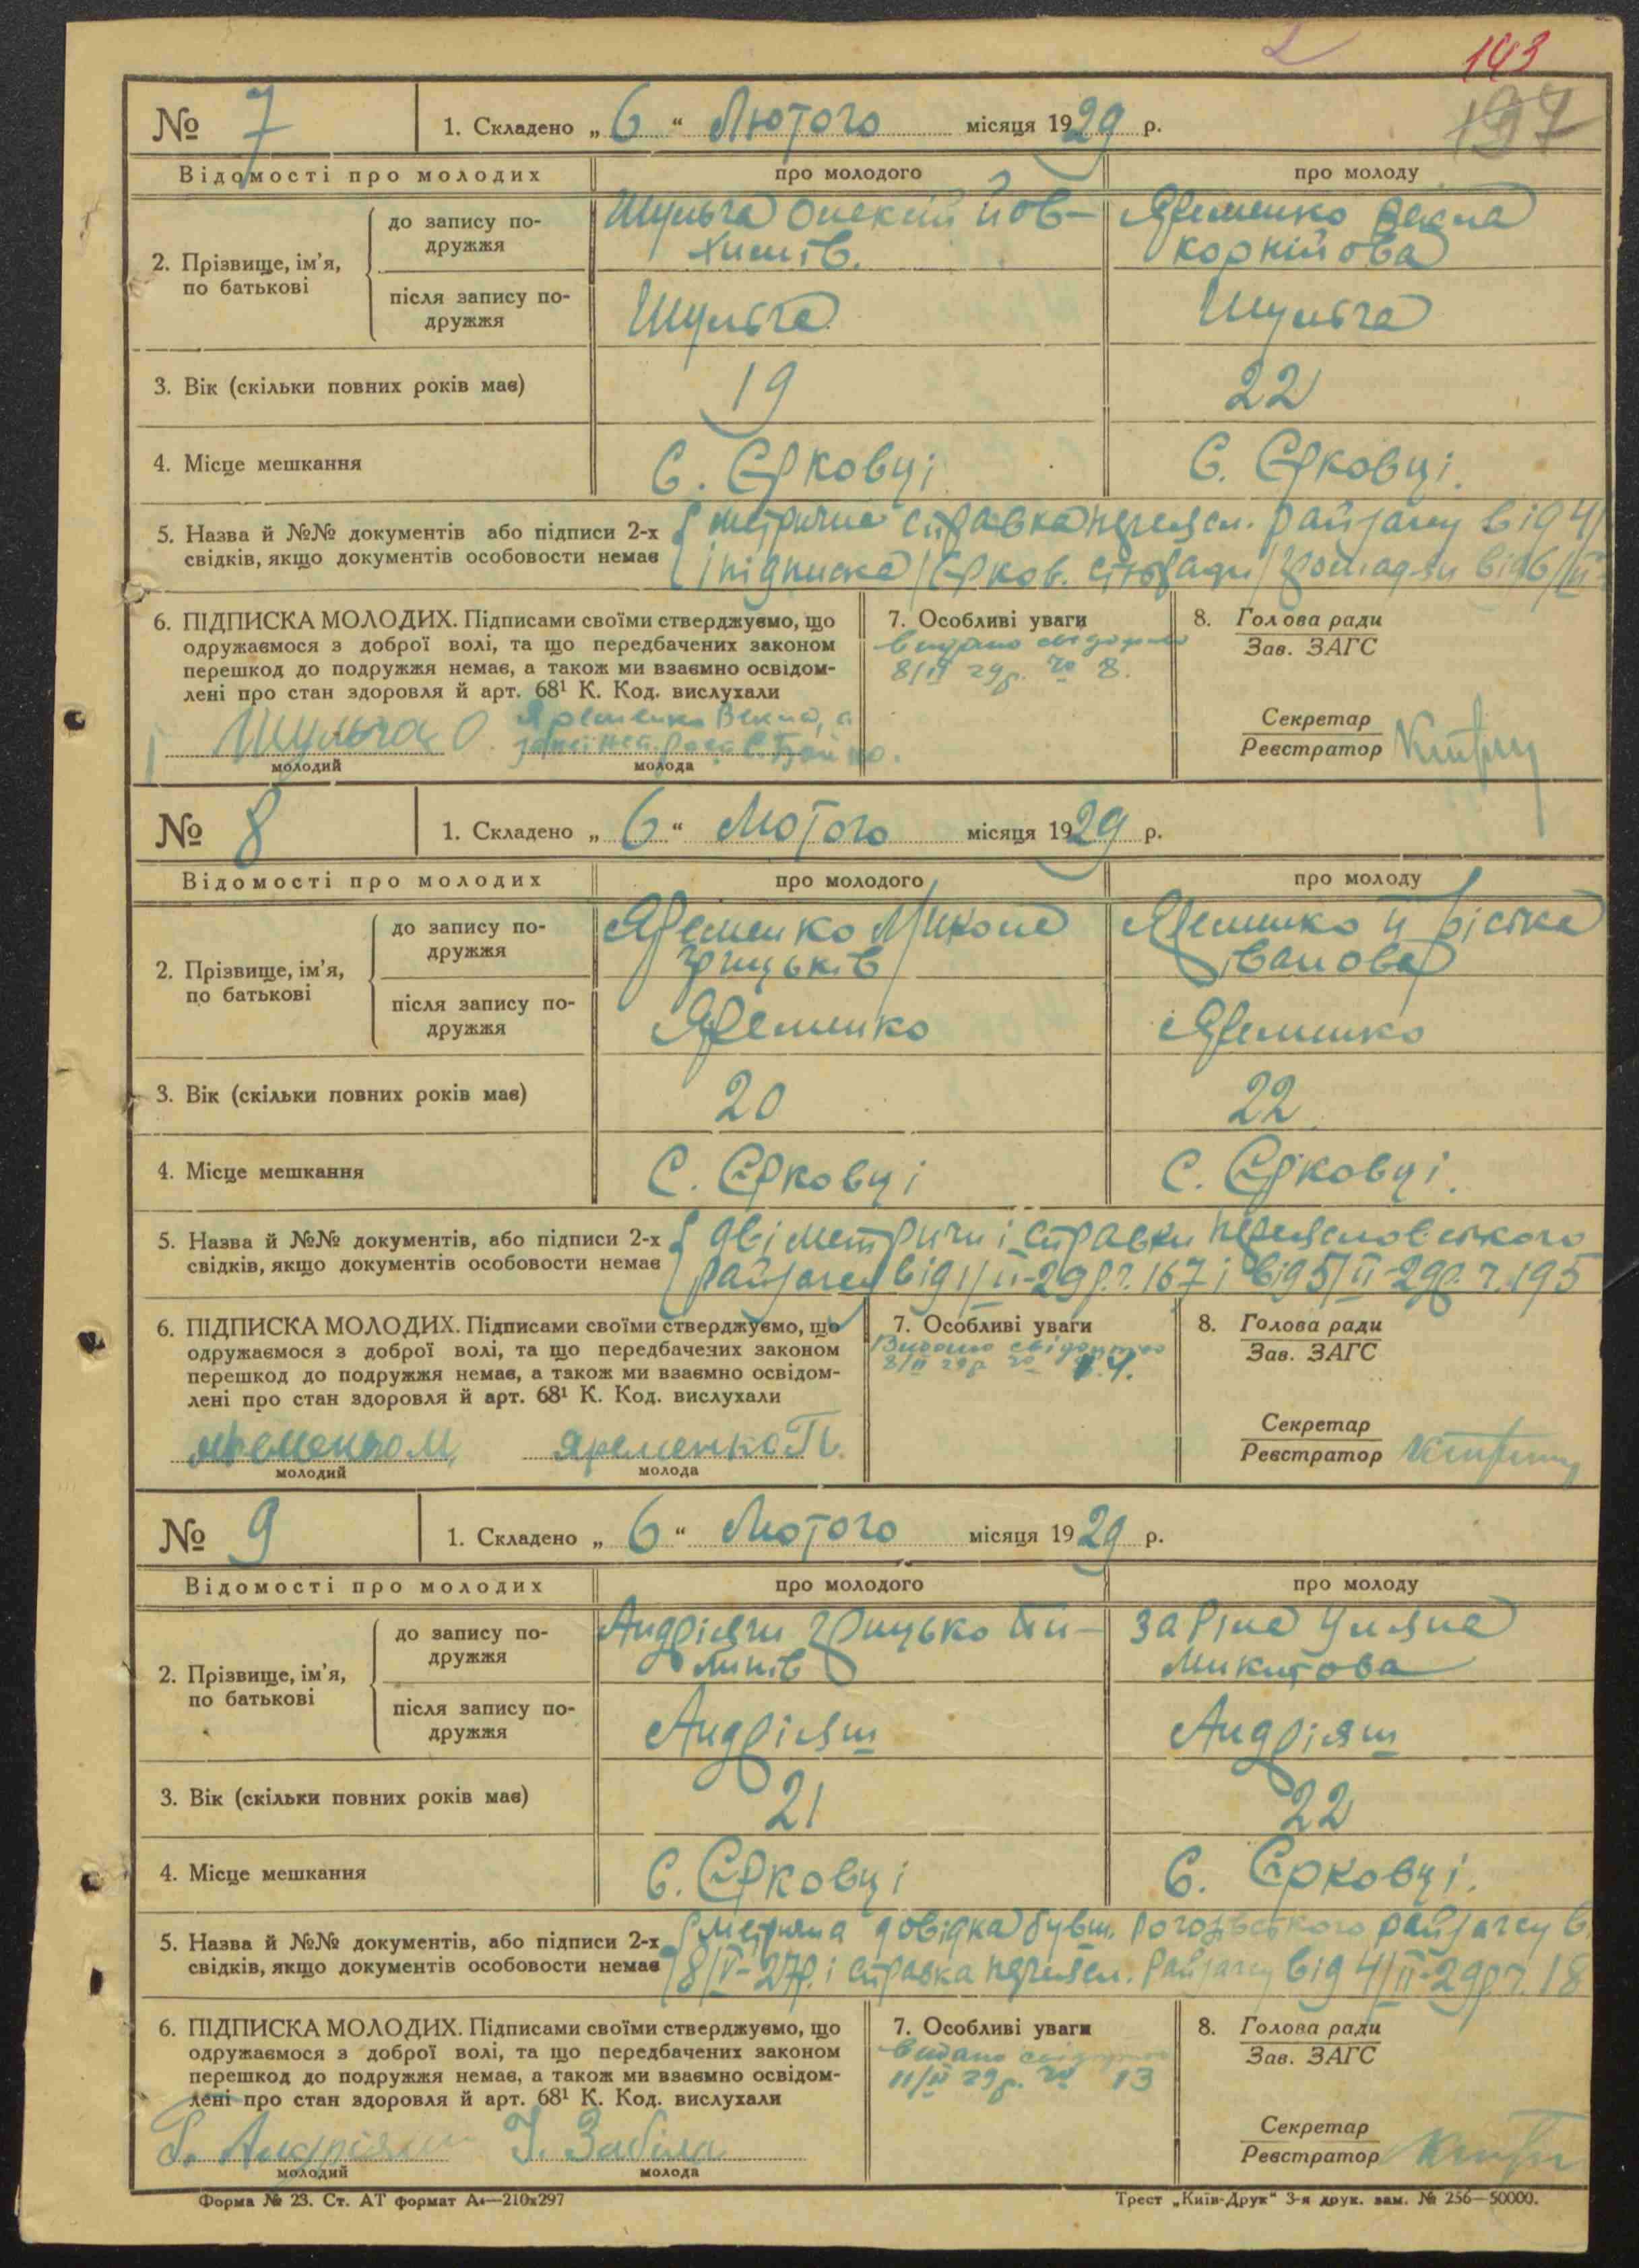 143
197
№ 7 1. Складено „6“ Лютого місяця 1929 р.
Відомості про молодих про молодого про молоду
2. Прізвище, ім’я, по батькові
до запису по-
дружжя
Шульга Олексій Йов-
химів.
Яременко Векла
Корнійова
після запису по-
дружжя
Шульга Шульга
3. Вік (скільки повних років має) 19 22
4. Місце мешкання С. Єрковці С. Єрковці.
5. Назва й №№ документів або підписи 2-х
свідків, якщо документів особовости немає
справка переясл. райзагсу від 4/
підписка Єрков. від 6/II
6. ПІДПИСКА МОЛОДИХ. Підписами своїми стверджуємо, що
одружаємося з доброї волі, та що передбачених законом
перешкод до подружжя немає, а також ми взаємно освідом-
лені про стан здоровля й арт. 68¹ К. Код. вислухали
Шульга О. Яременко Векла, а
молодий молода
7. Особливі уваги
видано свідоцтво
8/II 29р. № 8.
8. Голова ради
Зав. ЗАГС
Секретар
Реєстратор
№ 8 1. Складено „6“ Лютого місяця 1929 р.
Відомості про молодих про молодого про молоду
2. Прізвище, ім’я, по батькові
до запису по-
дружжя
Яременко Микола
Грицьків
Яременко
Іванова
після запису по-
дружжя
Яременко Яременко
3. Вік (скільки повних років має) 20 22
4. Місце мешкання С. Єрковці С. Єрковці.
5. Назва й №№ документів, або підписи 2-х
свідків, якщо документів особовости немає
дві метричні справки Переяславського
райзагсу від 1/II-29р. ч. 167 і від 5/II-29р. ч. 195
6. ПІДПИСКА МОЛОДИХ. Підписами своїми стверджуємо, що
одружаємося з доброї волі, та що передбачених законом
перешкод до подружжя немає, а також ми взаємно освідом-
лені про стан здоровля й арт. 68¹ К. Код. вислухали
Яременко М. Яременко П.
молодий молода
7. Особливі уваги
Видано свідоцтво
8/II 29р №
8. Голова ради
Зав. ЗАГС
Секретар
Реєстратор
№ 9 1. Складено „6“ Лютого місяця 1929 р.
Відомості про молодих про молодого про молоду
2. Прізвище, ім’я, по батькові
до запису по-
дружжя
Андріяш Грицько Пи-
липів
Забіла Уляна
Микитова
після запису по-
дружжя
Андріяш Андріяш
3. Вік (скільки повних років має) 21 22
4. Місце мешкання С. Єрковці С. Єрковці.
5. Назва й №№ документів, або підписи 2-х
свідків, якщо документів особовости немає
довідка бувш. райзагсу в
8/IV-27р. і справка переясл. райзагсу від 4/II-29р ч. 18
6. ПІДПИСКА МОЛОДИХ. Підписами своїми стверджуємо, що
одружаємося з доброї волі, та що передбачених законом
перешкод до подружжя немає, а також ми взаємно освідом-
лені про стан здоровля й арт. 68¹ К. Код. вислухали
Г. Андріяш У. Забіла
молодий молода
7. Особливі уваги
видано свідоцтво
11/II 29р. № 13
8. Голова ради
Зав. ЗАГС
Секретар
Реєстратор
Форма № 23. Ст. АТ формат А₄—210х297
Трест „Київ-Друк“ 3-я друк. зам. № 256—50000.